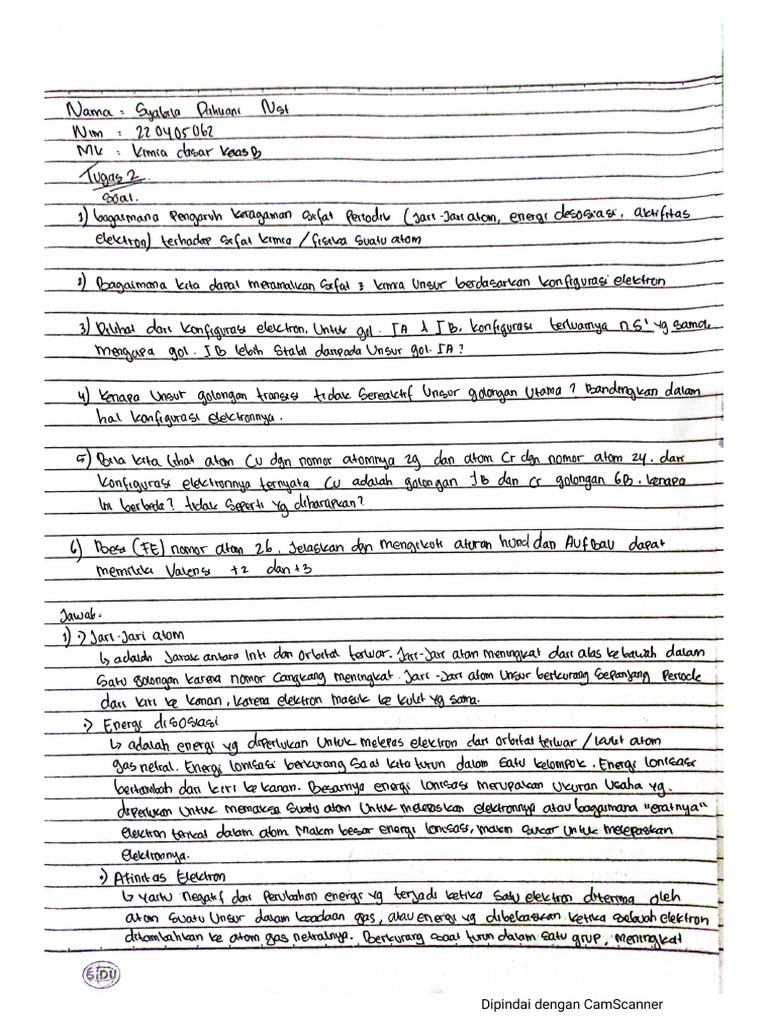 Nama : Syabila Dahwani Nst
Nim : 220405062
Mk : Kimia dasar kelas B
Tugas 2
Soal.
1) bagaimana Pengaruh keragaman sifat Periodik (Jari-Jari atom, energi desosiasi, aktifitas
elektron) terhadap sifat kimia / fisika suatu atom
2) Bagaimana kita dapat meramalkan sifat kimia Unsur berdasarkan konfigurasi elektron
3) Dilihat dari konfigurasi elektron, Untuk gol. IA & IB, konfigurasi terluarnya ns¹ yg sama,
mengapa gol. IB lebih Stabil daripada Unsur gol. IA?
4) Kenapa Unsur golongan transisi tidak Sereaktif Unsur golongan Utama? Bandingkan dalam
hal konfigurasi elektronnya.
5) Bila kita lihat atom Cu dgn nomor atomnya 29 dan atom Cr dgn nomor atom 24. dari
konfigurasi elektronnya ternyata Cu adalah golongan 1B dan Cr golongan 6B. kenapa
ini berbeda? tidak Seperti yg diharapkan?
6) Besi (FE) nomor atom 26. Jelaskan dgn mengikuti aturan hund dan Aufbau dapat
memiliki Valensi +2 dan +3
Jawab.
1) •) Jari-Jari atom
↳ adalah Jarak antara Inti dan orbital terluar. Jari-Jari atom meningkat dari atas kebawah dalam
satu golongan karena nomor cangkang meningkat. Jari-Jari atom Unsur berkurang Sepanjang Periode
dari kiri ke kanan, karena elektron masuk ke kulit yg sama.
•) Energi disosiasi
↳ adalah energi yg diperlukan Untuk melepas elektron dari orbital terluar / kulit atom
gas netral. Energi Ionisasi berkurang Saat kita turun dalam satu kelompok. Energi Ionisasi
bertambah dari kiri ke kanan. Besarnya energi Ionisasi merupakan Ukuran Usaha yg.
diperlukan Untuk memaksa Suatu atom Untuk melepaskan elektronnya atau bagaimana "eratnya"
elektron terikat dalam atom. Makin besar energi Ionisasi, makin Sukar Untuk melepaskan
elektronnya.
•) Afinitas Elektron
↳ Yaitu negatif dari Perubahan energi yg terjadi ketika satu elektron diterima oleh
atom Suatu Unsur dalam keadaan gas, atau energi yg dibebaskan ketika sebuah elektron
ditambahkan ke atom gas netralnya. Berkurang saat turun dalam satu grup, meningkat
SIDU
Dipindai dengan CamScanner